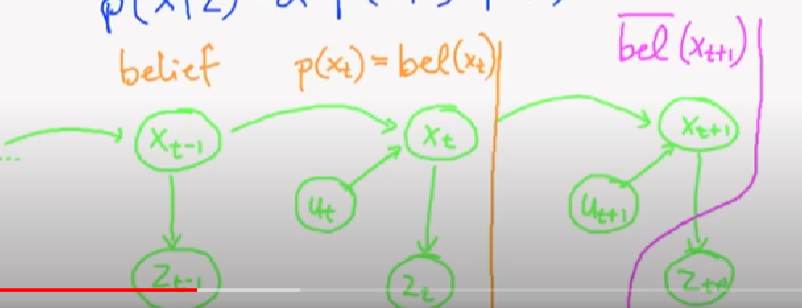 p(x|z)
belief p(xₜ) = bel(xₜ) b̅e̅l̅(xₜ₊₁)
... xₜ₋₁ xₜ xₜ₊₁
uₜ uₜ₊₁
zₜ₋₁ zₜ zₜ₊₁